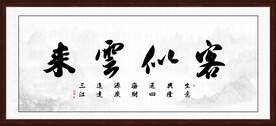 客似雲来
生意興隆通四海財源廣進達三江